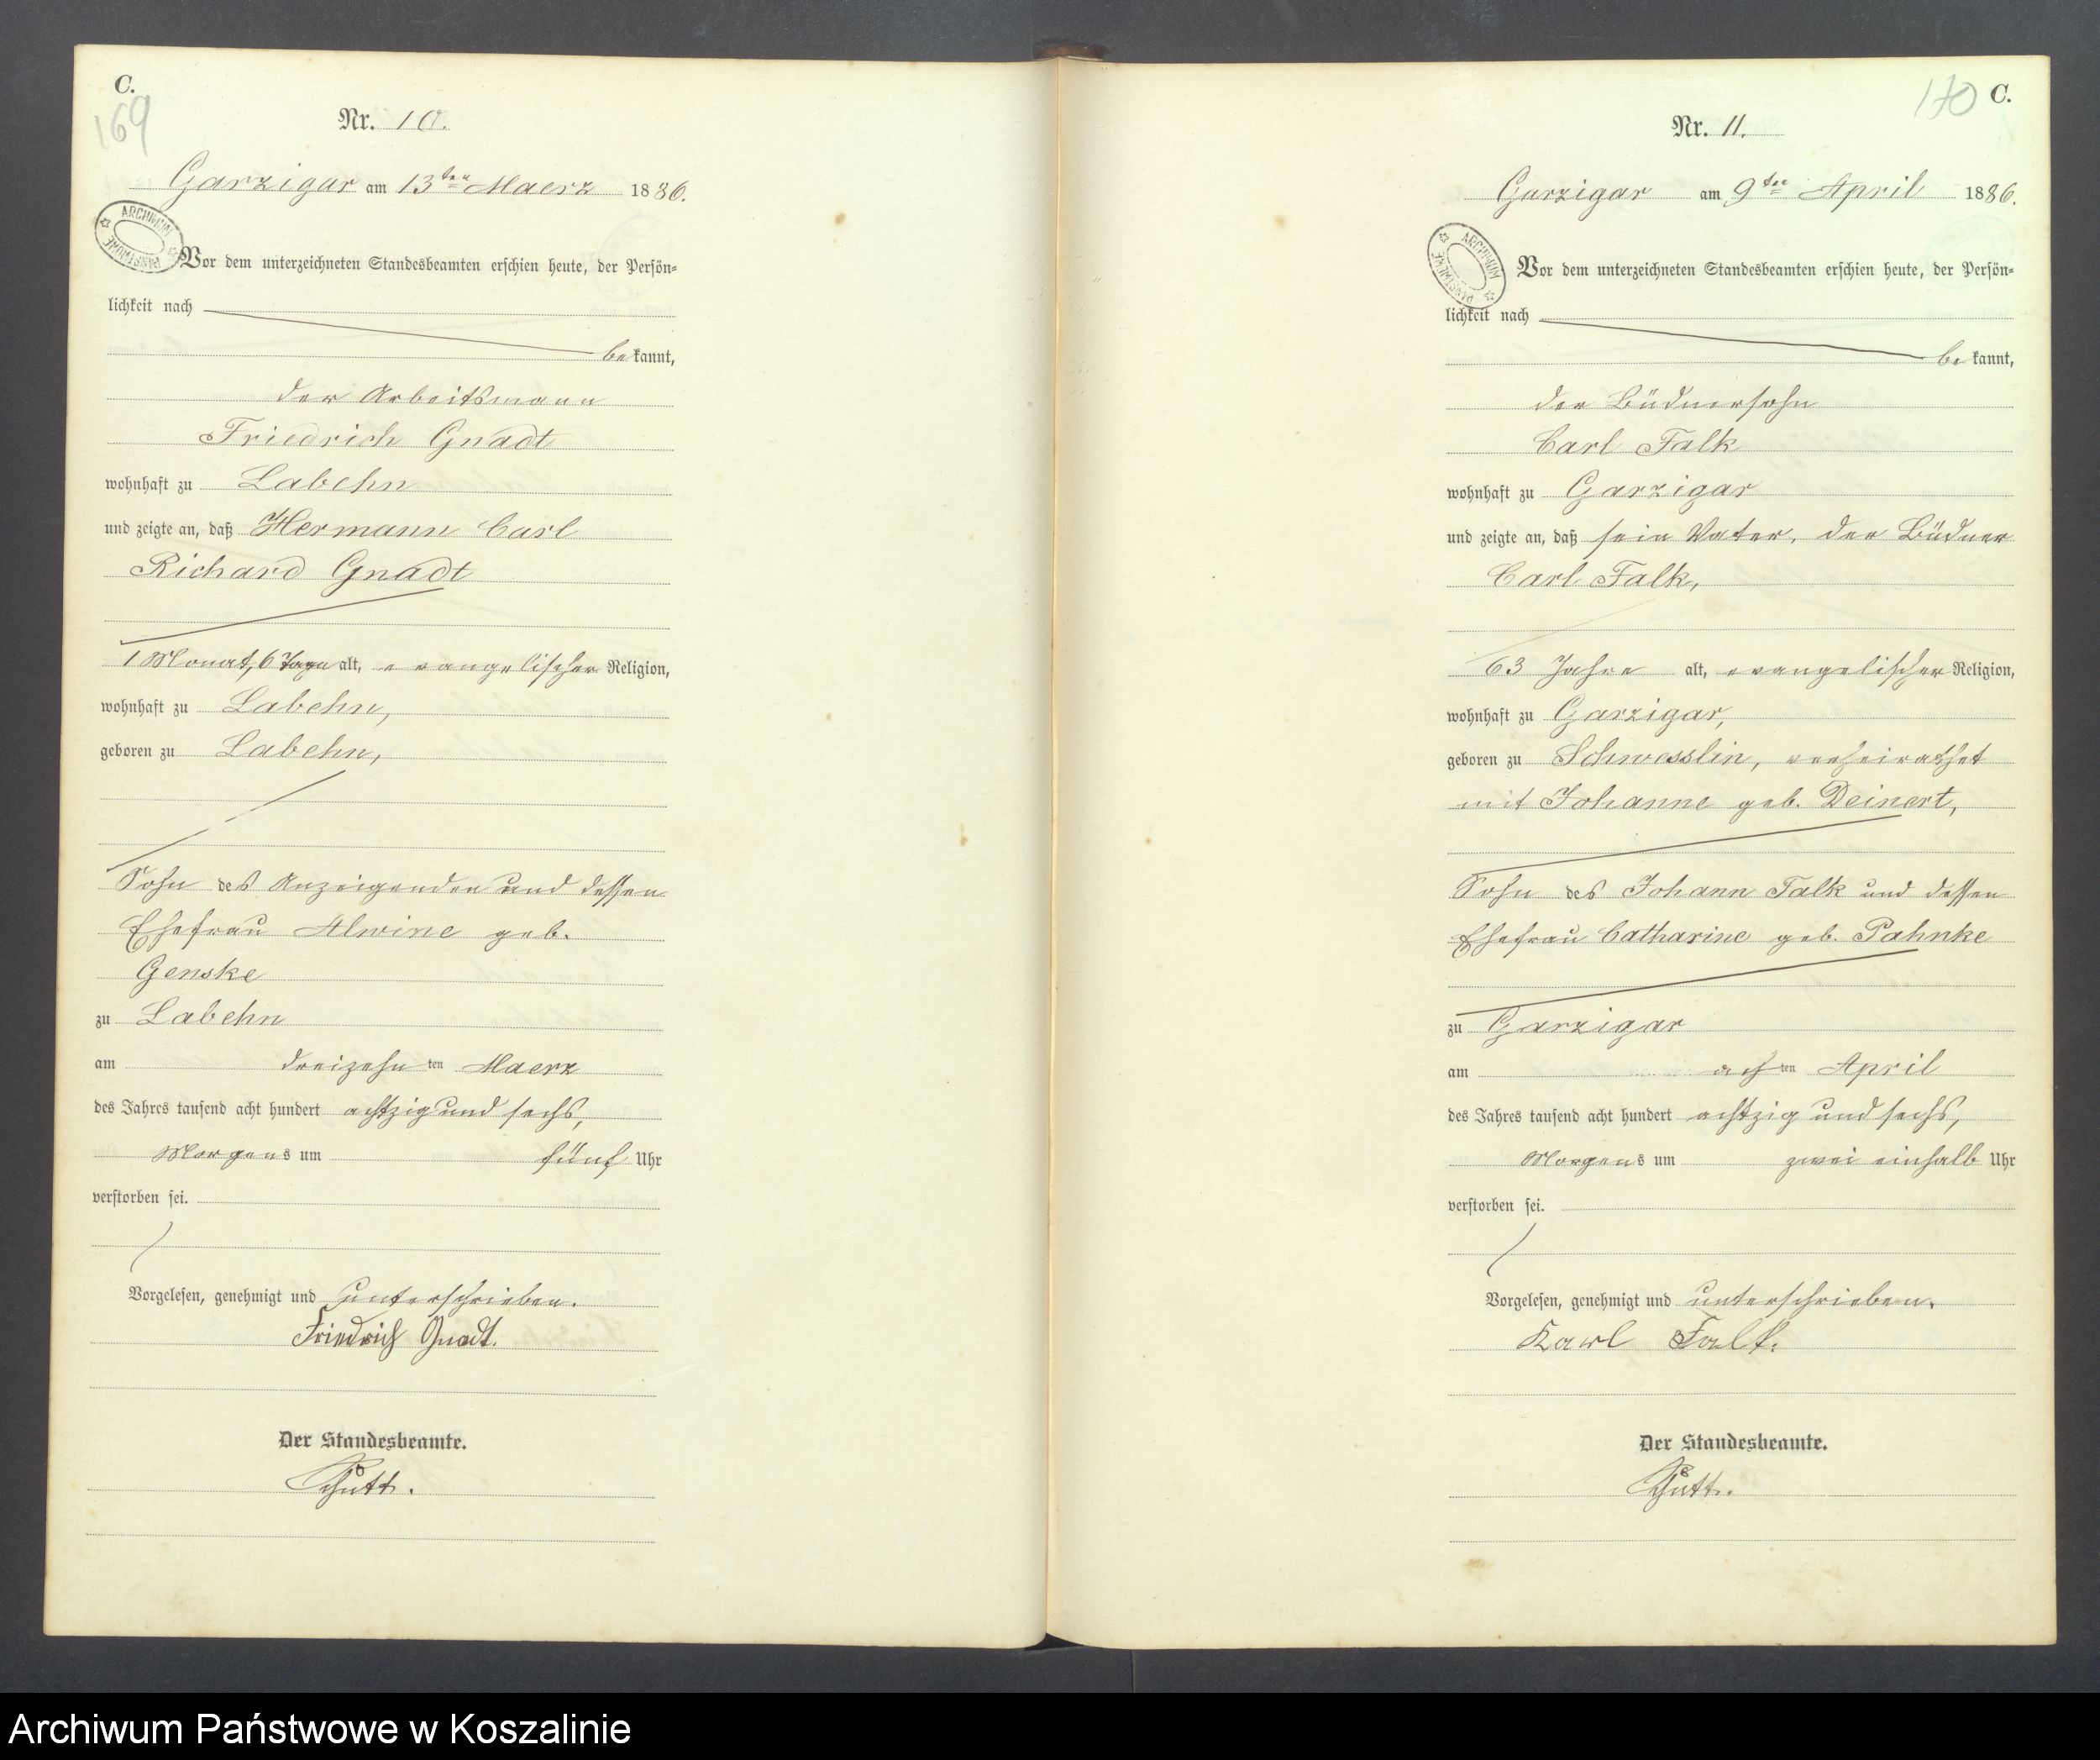 C.
169
Nr. 10.
Garzigar am 13ten Maerz 1886.
ARCHIWUM PAŃSTWOWE
Vor dem unterzeichneten Standesbeamten erschien heute, der Persön=
lichkeit nach
bekannt,
der Arbeitsmann
Friedrich Gnadt
wohnhaft zu Labehn
und zeigte an, daß Hermann Carl
Richard Gnadt
1 Monat, 6 Tage alt, evangelischer Religion,
wohnhaft zu Labehn,
geboren zu Labehn,
Sohn des Anzeigenden und dessen
Ehefrau Alwine geb.
Genske
zu Labehn
am dreizehnten Maerz
des Jahres tausend acht hundert achtzig und sechs,
Morgens um fünf Uhr
verstorben sei.
Vorgelesen, genehmigt und unterschrieben.
Friedrich Gnadt.
Der Standesbeamte.
170 C.
Nr. 11.
Garzigar am 9ten April 1886.
ARCHIWUM PAŃSTWOWE
Vor dem unterzeichneten Standesbeamten erschien heute, der Persön=
lichkeit nach
bekannt,
der Büdnersohn
Carl Falk
wohnhaft zu Garzigar
und zeigte an, daß sein Vater, der Büdner
Carl Falk,
63 Jahre alt, evangelischer Religion,
wohnhaft zu Garzigar,
geboren zu Schwesslin, verheirathet
mit Johanne geb. Deinert,
Sohn des Johann Falk und dessen
Ehefrau Catharine geb. Pahnke
zu Garzigar
am achten April
des Jahres tausend acht hundert achtzig und sechs,
Morgens um zwei einhalb Uhr
verstorben sei.
Vorgelesen, genehmigt und unterschrieben.
Karl Falk.
Der Standesbeamte.
Archiwum Państwowe w Koszalinie